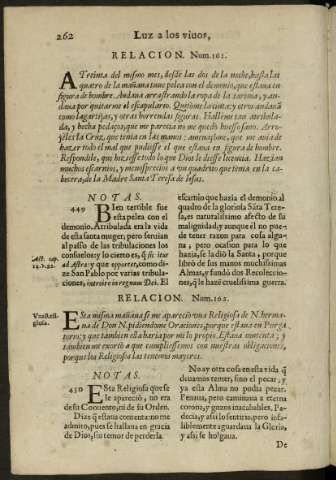 262 Luz a los viuos,
RELACION. Num.101.
A Treinta del mismo mes, desde las dos de la noche, hasta las
quatro de la mañana tuue pelea con el demonio, que estaua en
figura de hombre. Andaua arrastrando la ropa de la tarima, y an-
daua por quitarme el escapulario.
como lagartijas, y otras horrendas figuras. Halleme tan atribula-
da, y hecha pedaços, que me parecia no me quedò huesso sano. Arro-
jèles la Cruz, que tenia en las manos: amenaçome, que me auia de
hazer todo el mal que pudiesse el que estaua en figura de hombre.
Respondile, que hiziesse todo lo que Dios le diesse licencia. Hazian
muchos escarnios, y menosprecios à vn quadro que tenia en la ca-
becera, de la Madre Santa Teresa de Iesus.
NOTAS.
449 Bien terrible fue
esta pelea con el
demonio. Atribulada era la vida
de esta santa muger, pero seruian
al passo de las tribulaciones los
consuelos: y lo cierto es, que
y que oportet, como di-
ze San Pablo por varias tribula-
ciones, introire in regnum Dei. El
Act. cap.
14. v. 22.
escarnio que hazia el demonio al
quadro de la gloriosa Sãta Tere-
sa, es naturalissimo afecto de su
malignidad, y aunque el no pue-
de tener razon para cosa algu-
na, pero ocasion para lo que
hazia, se la diò la Santa, porque
librò de sus manos muchissimas
Almas, y fundò dos Recoleccio-
nes, q̃ le hazẽ cruelissima guerra.
RELACION. Num.102.
Vna Reli-
giosa.
Esta misma mañana se me apareciò vna Religiosa de N. herma-
na de Don N. pidiendome Oraciones, porque estaua en Purga-
torio; y que tambien ella haria por mi lo propio. Estaua contenta; y
tambien me exortò a que cumpliessemos con nuestras obligaciones,
porque los Religiosos las tenemos mayores.
NOTAS.
450 Esta Religiosa que se
le apareciò, no era
de su Conuento, ni de su Orden.
Dize q̃ estaua contenta: no me
admiro, pues se hallaua en gracia
de Dios, sin temor de perderla.
No ay otra cosa en esta vida q̃
deuamos temer, sino el pecar, y
ya esta Alma no podia pecar.
Penaua, pero caminaua a eterna
corona, y gozos inacabables. Pa-
decia, y assi lo sentiria; pero infa-
liblemente aguardaua la Gloria,
y assi se holgaua.
De